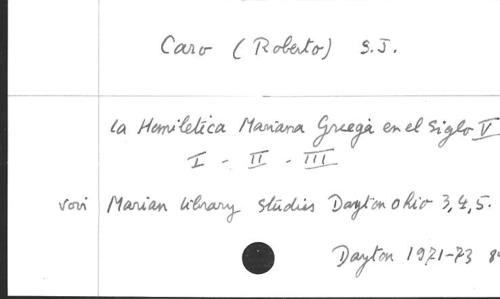 Caro (Roberto) S.J.
La Homiletica Mariana Griega en el Siglo V
I - II - III
voir Marian library studies Dayton ohio 3,4,5.
Dayton 1971-73